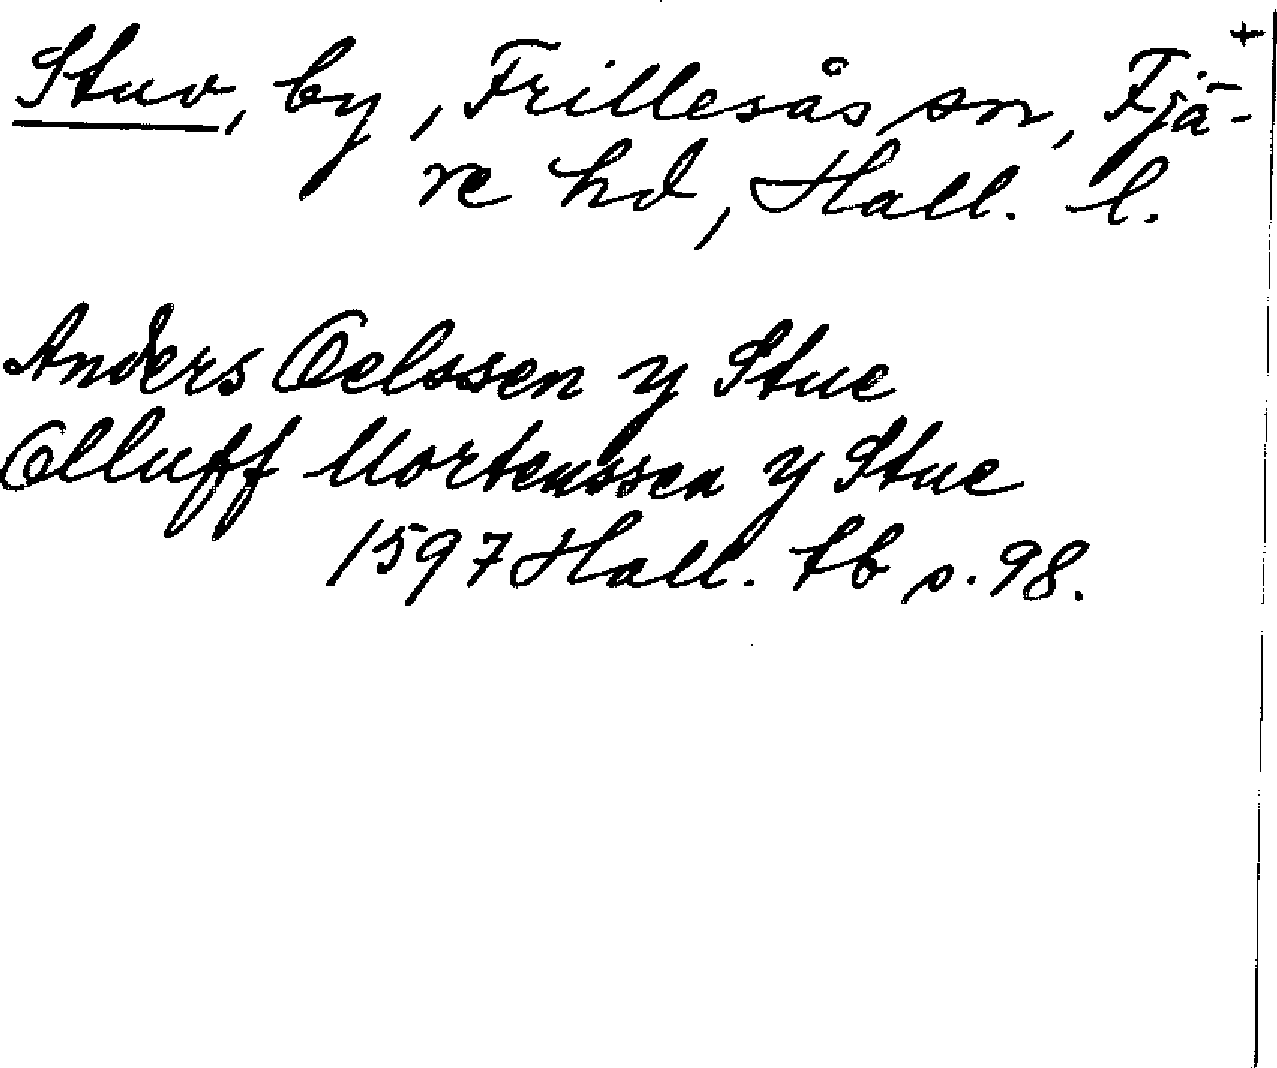 +
Stuv, by, Frillesås sn, Fjä-
re hd, Hall. l.
Anders Oelssen y Stue
Olluff Mortenssen y Stue
1597 Hall. tb s. 98.